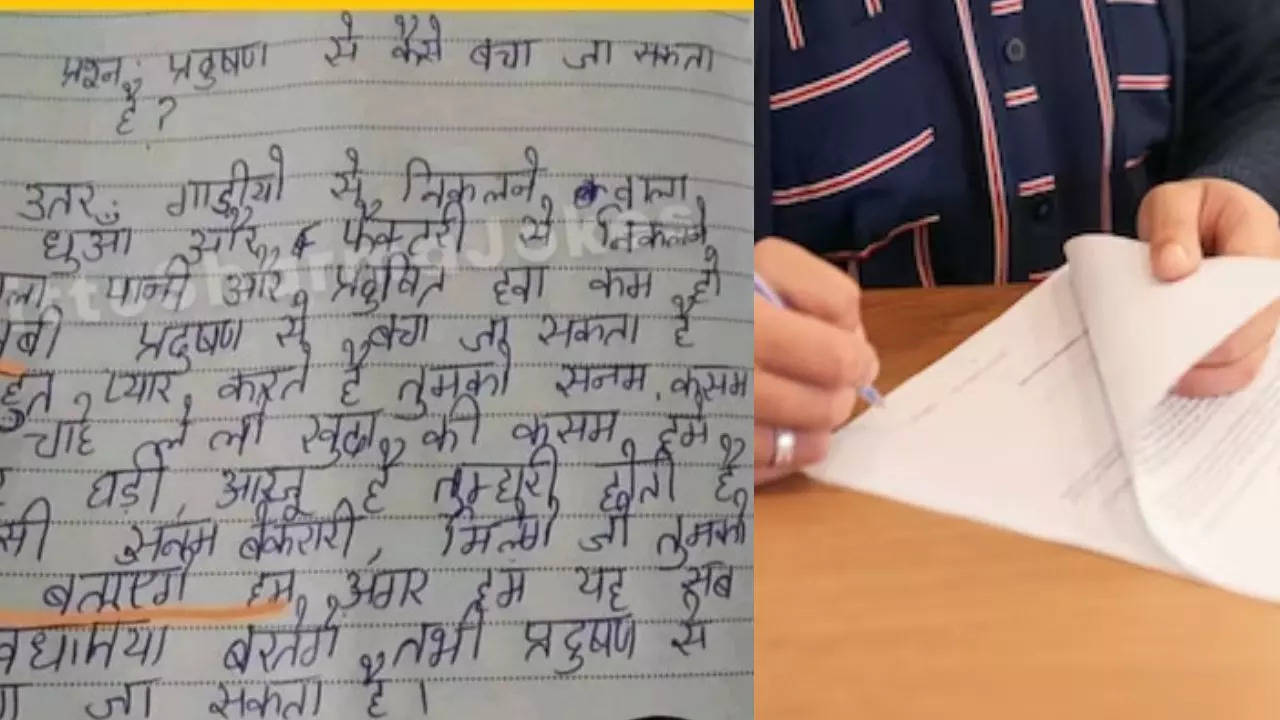 प्रश्न: प्रदुषण से कैसे बचा जा सकता
है?
उतर: गाड़ीयो से निकलने वाला
धुआँ और फैक्टरी से निकलने
ला पानी और प्रदुषित हवा कम हो
बी प्रदुषण से बचा जा सकता है
हुत प्यार करते है तुमको सनम, कसम
चाहे ले लो खुदा की कसम, हमे
घड़ी आरजू है तुम्हारी होती है
सी सनम बेकरारी, मिलेगे जो तुमको
बताएगे हम, अगर हम यह सब
वधानिया बरतेगे तभी प्रदुषण से
जा सकता है।